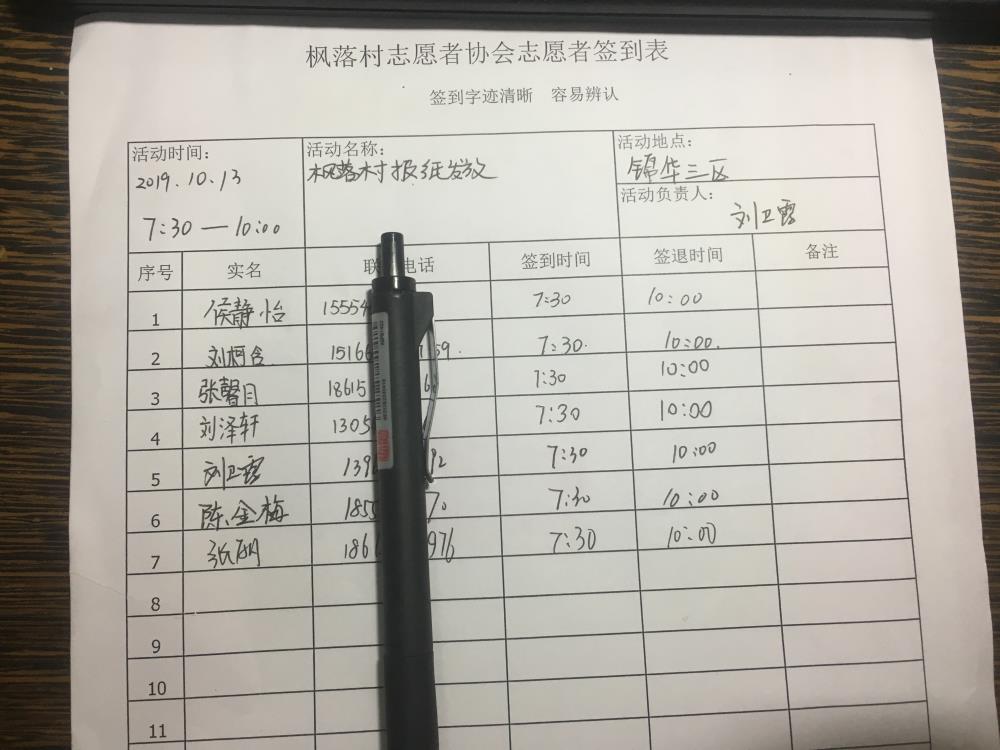 枫落村志愿者协会志愿者签到表
签到字迹清晰 容易辨认
活动时间: 活动名称: 活动地点:
2019.10.13 枫落村报纸发放 锦华三区
7:30 — 10:00 活动负责人: 刘卫霞
序号 实名 联 电话 签到时间 签退时间 备注
1 侯静怡 15554 7:30 10:00
2 刘柯含 1516 59. 7:30. 10:00.
3 张馨月 18615 6 7:30 10:00
4 刘泽轩 1305 7:30 10:00
5 刘卫霞 139 92 7:30 10:00
6 陈金梅 185 70 7:30 10:00
7 张丽 186 976 7:30 10:00
8
9
10
11